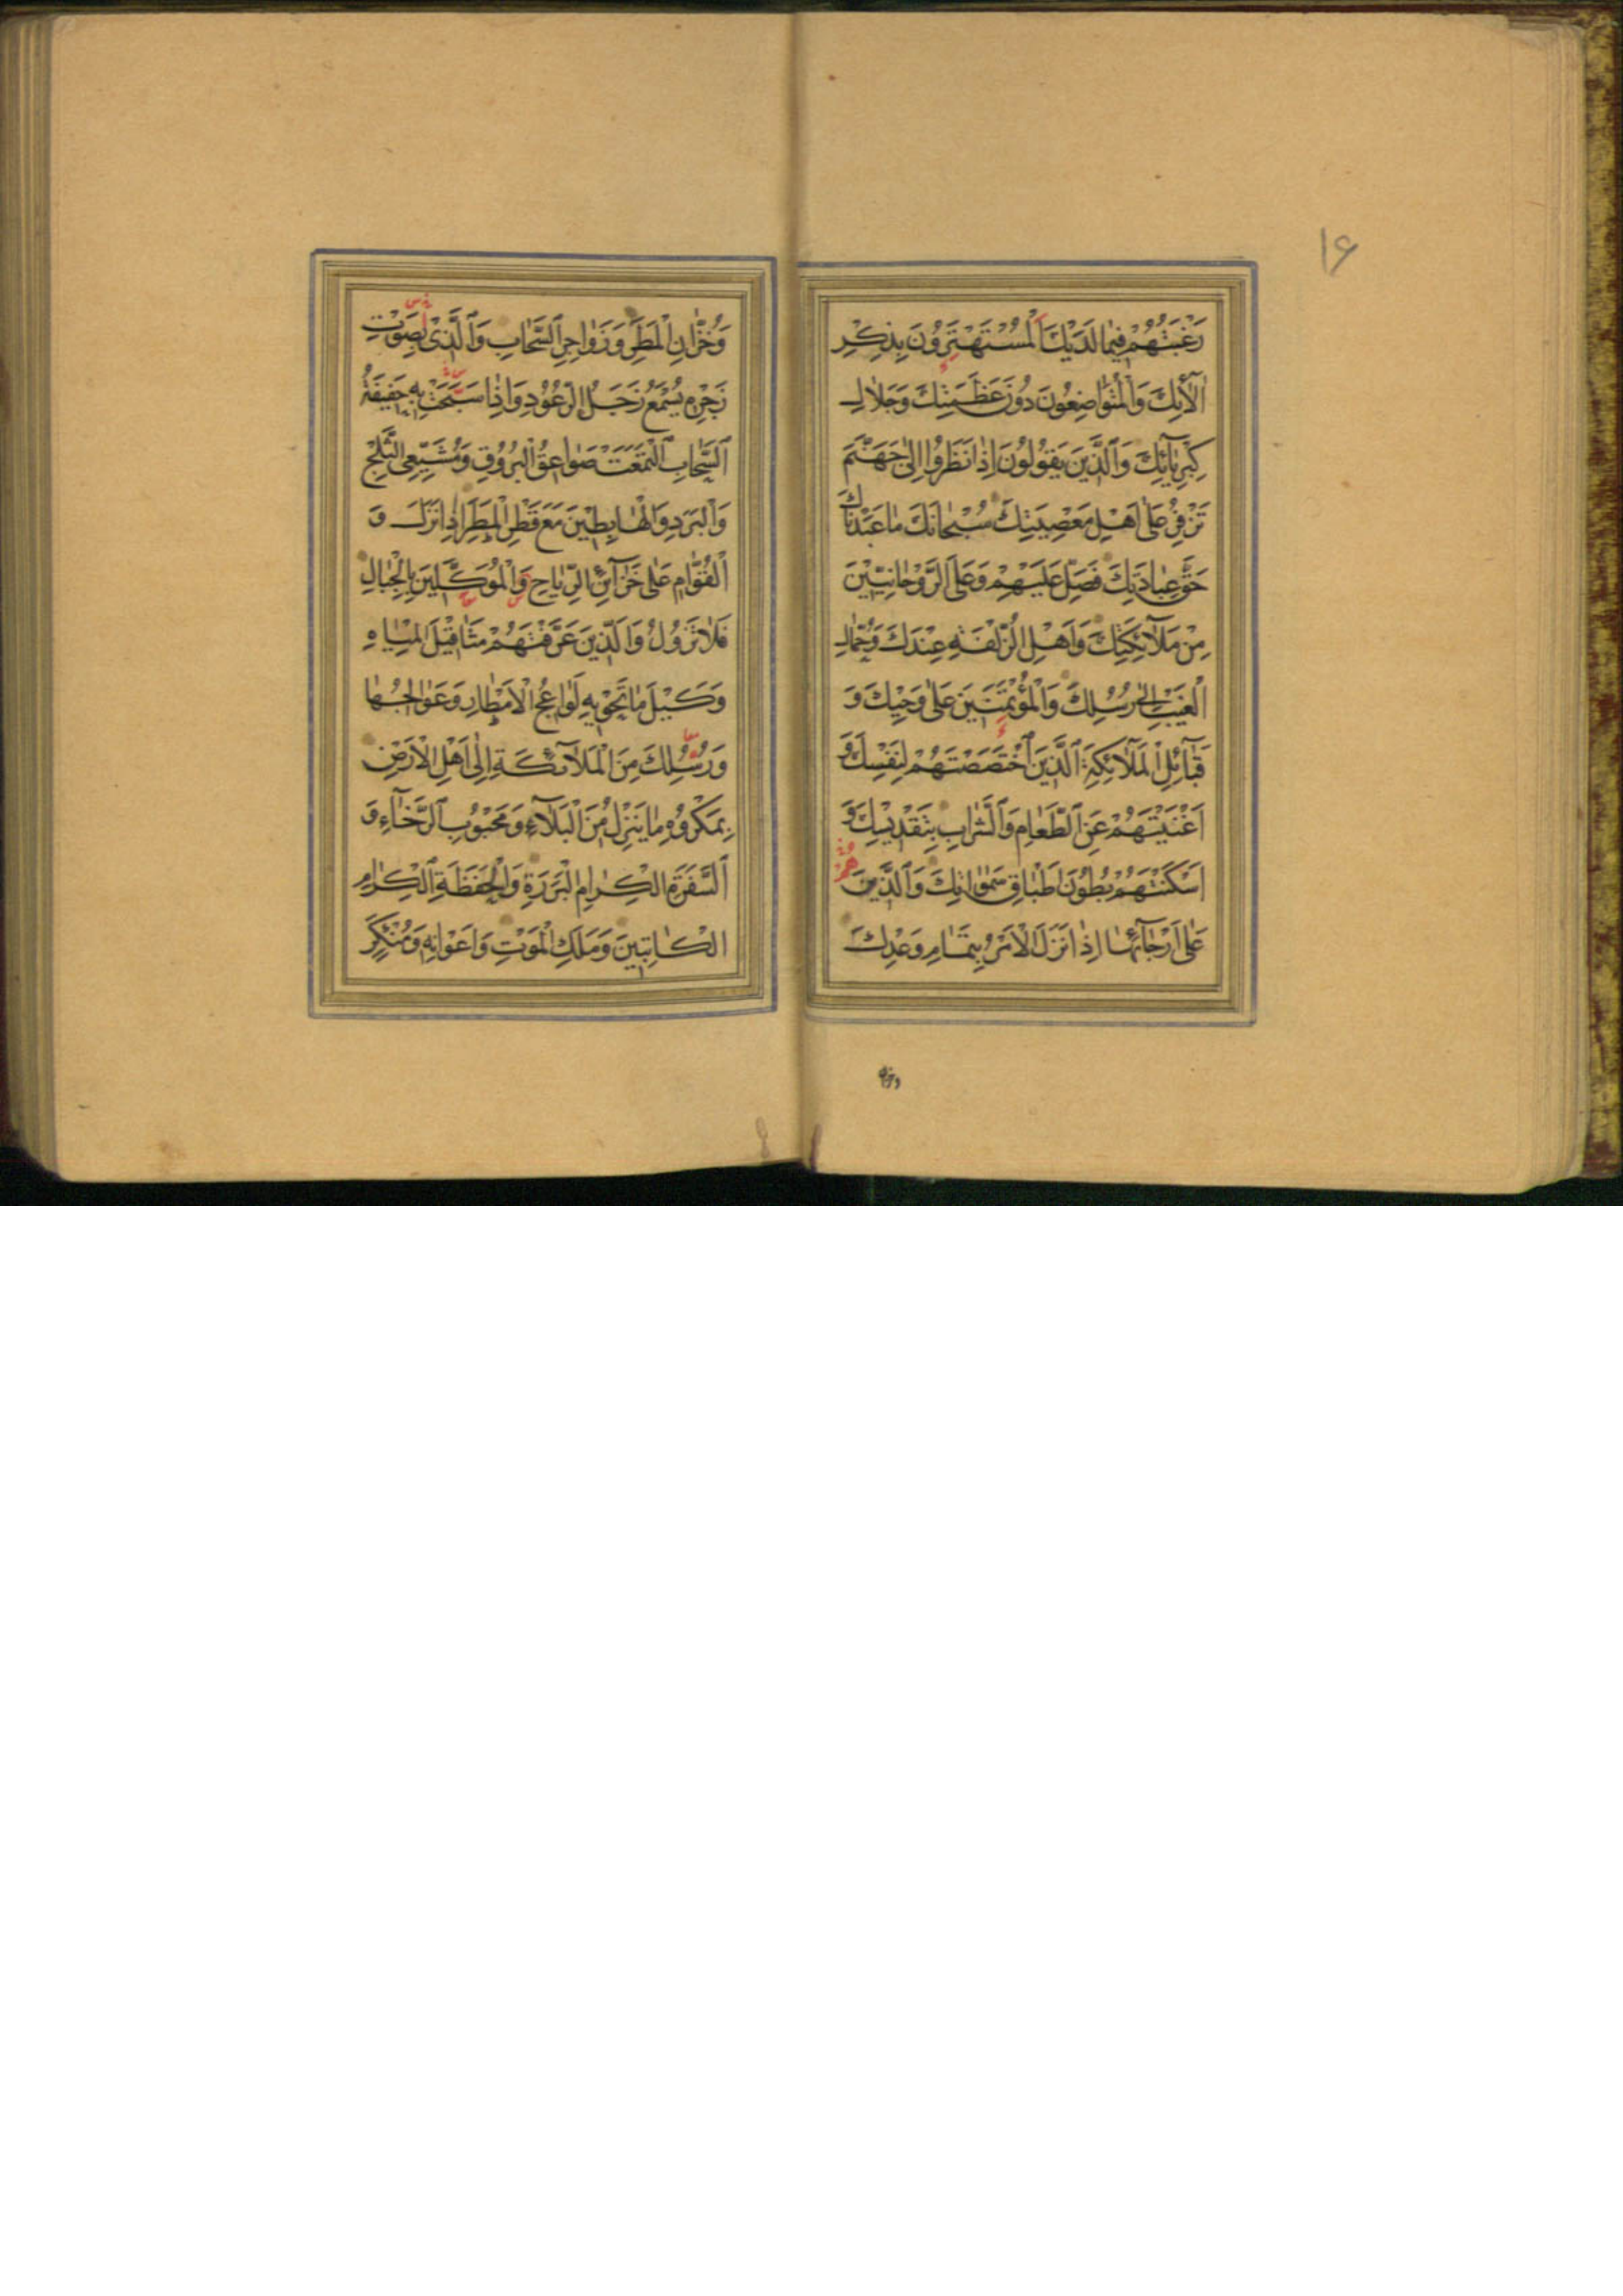 ۱۶
رَغْبَتُهُمْ فِيمٰا لَدَيْكَ الْمُسْتَهْتَرُونَ بِذِكْرِ
اٰلاٰئِكَ وَالْمُتَوٰاضِعُونَ دُونَ عَظَمَتِكَ وَجَلاٰلِ
كِبْرِيٰآئِكَ وَالَّذِينَ يَقُولُونَ اِذٰا نَظَرُوا اِلىٰ جَهَنَّمَ
تَزْفِرُ عَلىٰ اَهْلِ مَعْصِيَتِكَ سُبْحٰانَكَ مٰا عَبَدْنٰاكَ
حَقَّ عِبٰادَتِكَ فَصَلِّ عَلَيْهِمْ وَعَلَى الرَّوْحٰانِيّٖينَ
مِنْ مَلآٰئِكَتِكَ وَاَهْلِ الزُّلْفَةِ عِنْدَكَ وَحُمّٰالِ
الْغَيْبِ اِلىٰ رُسُلِكَ وَالْمُؤْتَمَنِينَ عَلىٰ وَحْيِكَ وَ
قَبٰآئِلِ الْمَلآٰئِكَةِ الَّذِينَ اخْتَصَصْتَهُمْ لِنَفْسِكَ وَ
اَغْنَيْتَهُمْ عَنِ الطَّعٰامِ وَالشَّرٰابِ بِتَقْدِيسِكَ وَ
اَسْكَنْتَهُمْ بُطُونَ اَطْبٰاقِ سَمٰوٰاتِكَ وَالَّذِينَ هُمْ
عَلىٰ اَرْجٰآئِهٰا اِذٰا نَزَلَ الْاَمْرُ بِتَمٰامِ وَعْدِكَ
وَخُزّٰانِ الْمَطَرِ وَزَوٰاجِرِ السَّحٰابِ وَالَّذِى بِصَوْتِ
زَجْرِهِ يُسْمَعُ زَجَلُ الرُّعُودِ وَاِذٰا سَبَّحَتْ بِهِ حَفِيفَةُ
السَّحٰابِ الْتَمَعَتْ صَوٰاعِقُ الْبُرُوقِ وَمُشَيِّعِى الثَّلْجِ
وَالْبَرَدِ وَالْهٰابِطِينَ مَعَ قَطْرِ الْمَطَرِ اِذٰا نَزَلَ وَ
الْقُوّٰامِ عَلىٰ خَزٰآئِنِ الرِّيٰاحِ وَالْمُوَكَّلِينَ بِالْجِبٰالِ
فَلاٰ تَزُولُ وَالَّذِينَ عَرَّفْتَهُمْ مَثٰاقِيلَ الْمِيٰاهِ
وَكَيْلَ مٰا تَحْوِيهِ لَوٰاعِجُ الْاَمْطٰارِ وَعَوٰالِجُهٰا
وَرُسُلِكَ مِنَ الْمَلآٰئِكَةِ اِلىٰ اَهْلِ الْاَرْضِ
بِمَكْرُوهِ مٰا يَنْزِلُ مِنَ الْبَلآٰءِ وَمَحْبُوبِ الرَّخٰآءِ وَ
السَّفَرَةِ الْكِرٰامِ الْبَرَرَةِ وَالْحَفَظَةِ الْكِرٰامِ
الْكٰاتِبِينَ وَمَلَكِ الْمَوْتِ وَاَعْوٰانِهِ وَمُنْكَرٍ